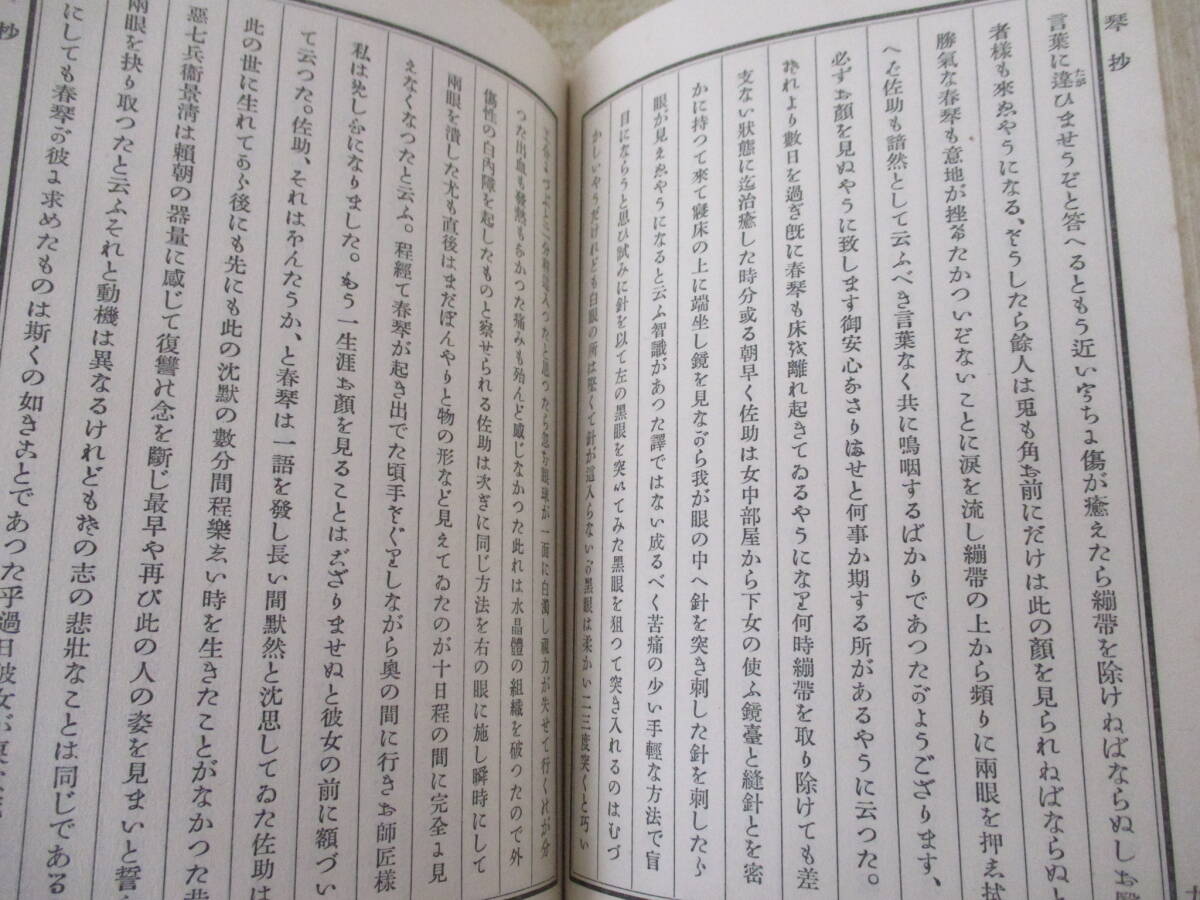 琴抄
言葉に違ひませうぞと答へるともう近いうちに傷が癒えたら繃帶を除けねばならぬしお醫
たが
者樣も來ぬやうになる、さうしたら餘人は兎も角お前にだけは此の顏を見られねばならぬと
勝氣な春琴も意地が挫けたかつひぞないことに淚を流し繃帶の上から頻りに兩眼を押し拭
へば佐助も諳然として云ふべき言葉なく共に嗚咽するばかりであつたがようござります、
必ずお顏を見ぬやうに致します御安心なさりませと何事か期する所があるやうに云つた。
それより數日を過ぎ旣に春琴も床を離れ起きてゐるやうになり何時繃帶を取り除けても差
支ない狀態に迄治癒した時分或る朝早く佐助は女中部屋から下女の使ふ鏡臺と縫針とを密
かに持つて來て寢床の上に端坐し鏡を見ながら我が眼の中へ針を突き刺した針を刺したら
眼が見えぬやうになると云ふ智識があつた譯ではない成るべく苦痛の少い手輕な方法で盲
目にならうと思ひ試みに針を以て左の黑眼を突いてみた黑眼を狙つて突き入れるのはむづ
かしいやうだけれども白眼の所は堅くて針が這入らないが黑眼は柔かい二三度突くと巧い
と二分程這入つたと思つたら忽ち眼球が一面に白濁し視力が失せて行くのが分
つた出血も發熱もなかつた痛みも殆んど感じなかつた此れは水晶體の組織を破つたので外
傷性の白內障を起したものと察せられる佐助は次ぎに同じ方法を右の眼に施し瞬時にして
兩眼を潰した尤も直後はまだぼんやりと物の形など見えてゐたのが十日程の間に完全に見
えなくなつたと云ふ。程經て春琴が起き出でた頃手さぐりしながら奧の間に行きお師匠樣
私はめしひになりました。もう一生涯お顏を見ることはござりませぬと彼女の前に額づい
て云つた。佐助、それはほんたうか、と春琴は一語を發し長い間默然と沈思してゐた佐助は
此の世に生れてから後にも先にも此の沈默の數分間程樂しい時を生きたことがなかつた昔
惡七兵衞景淸は賴朝の器量に感じて復讐の念を斷じ最早や再び此の人の姿を見まいと誓
兩眼を抉り取つたと云ふそれと動機は異なるけれどもその志の悲壯なことは同じである
にしても春琴が彼に求めたものは斯くの如きことであつた乎過日彼女が
抄